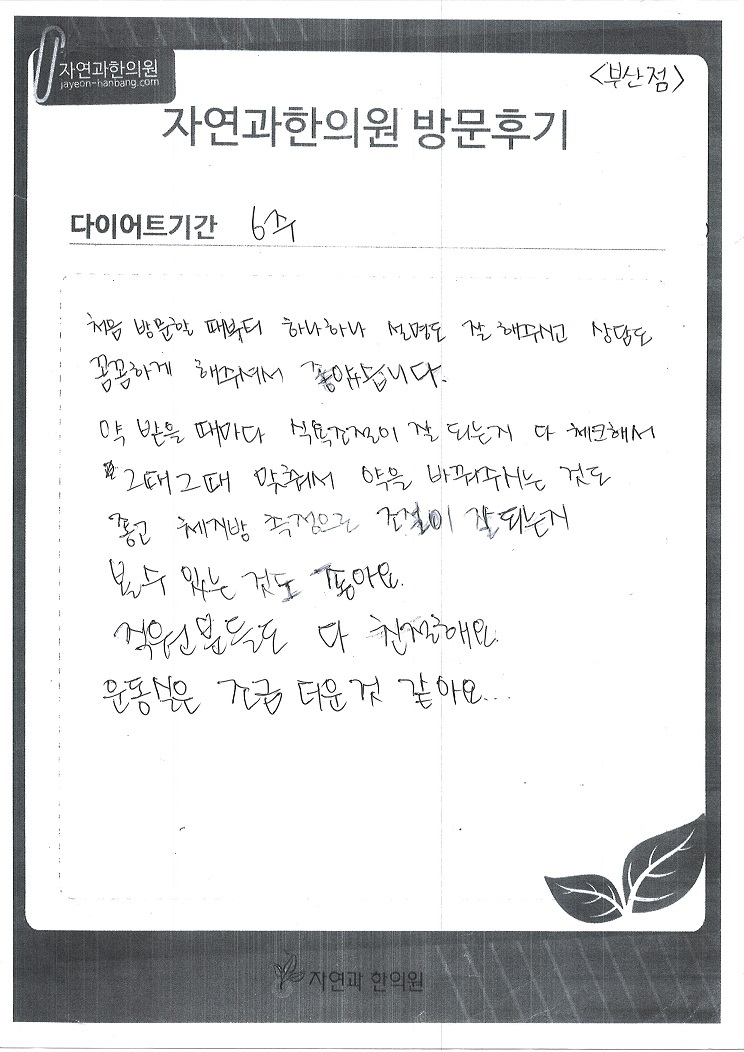 자연과한의원
jayeon-hanbang.com
<부산점>
자연과한의원 방문후기
다이어트기간 6주
처음 방문할 때부터 하나하나 설명도 잘 해주시고 상담도
꼼꼼하게 해주셔서 좋았습니다.
약 받을 때마다 식욕조절이 잘 되는지 다 체크해서
그때그때 맞춰서 약을 바꿔주시는 것도
좋고 체지방 측정으로 조절이 잘되는지
볼수 있는 것도 좋아요.
직원분들도 다 친절해요.
운동실은 조금 더운것 같아요...
자연과 한의원